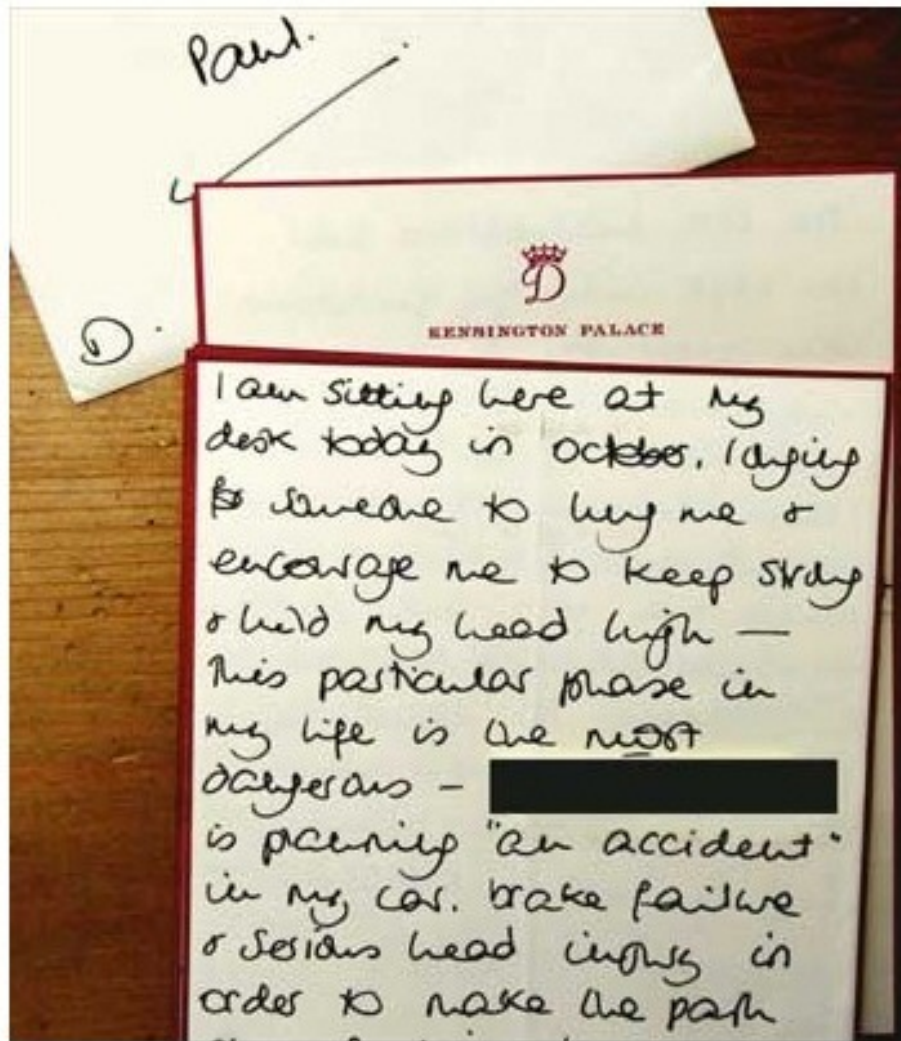 Paul.
D.
D
KENSINGTON PALACE
I am sitting here at my
desk today in october, longing
for someone to hug me &
encourage me to keep strong
& hold my head high —
This particular phase in
my life is the most
dangerous –
is planning "an accident"
in my car. brake failure
& serious head injury in
order to make the path